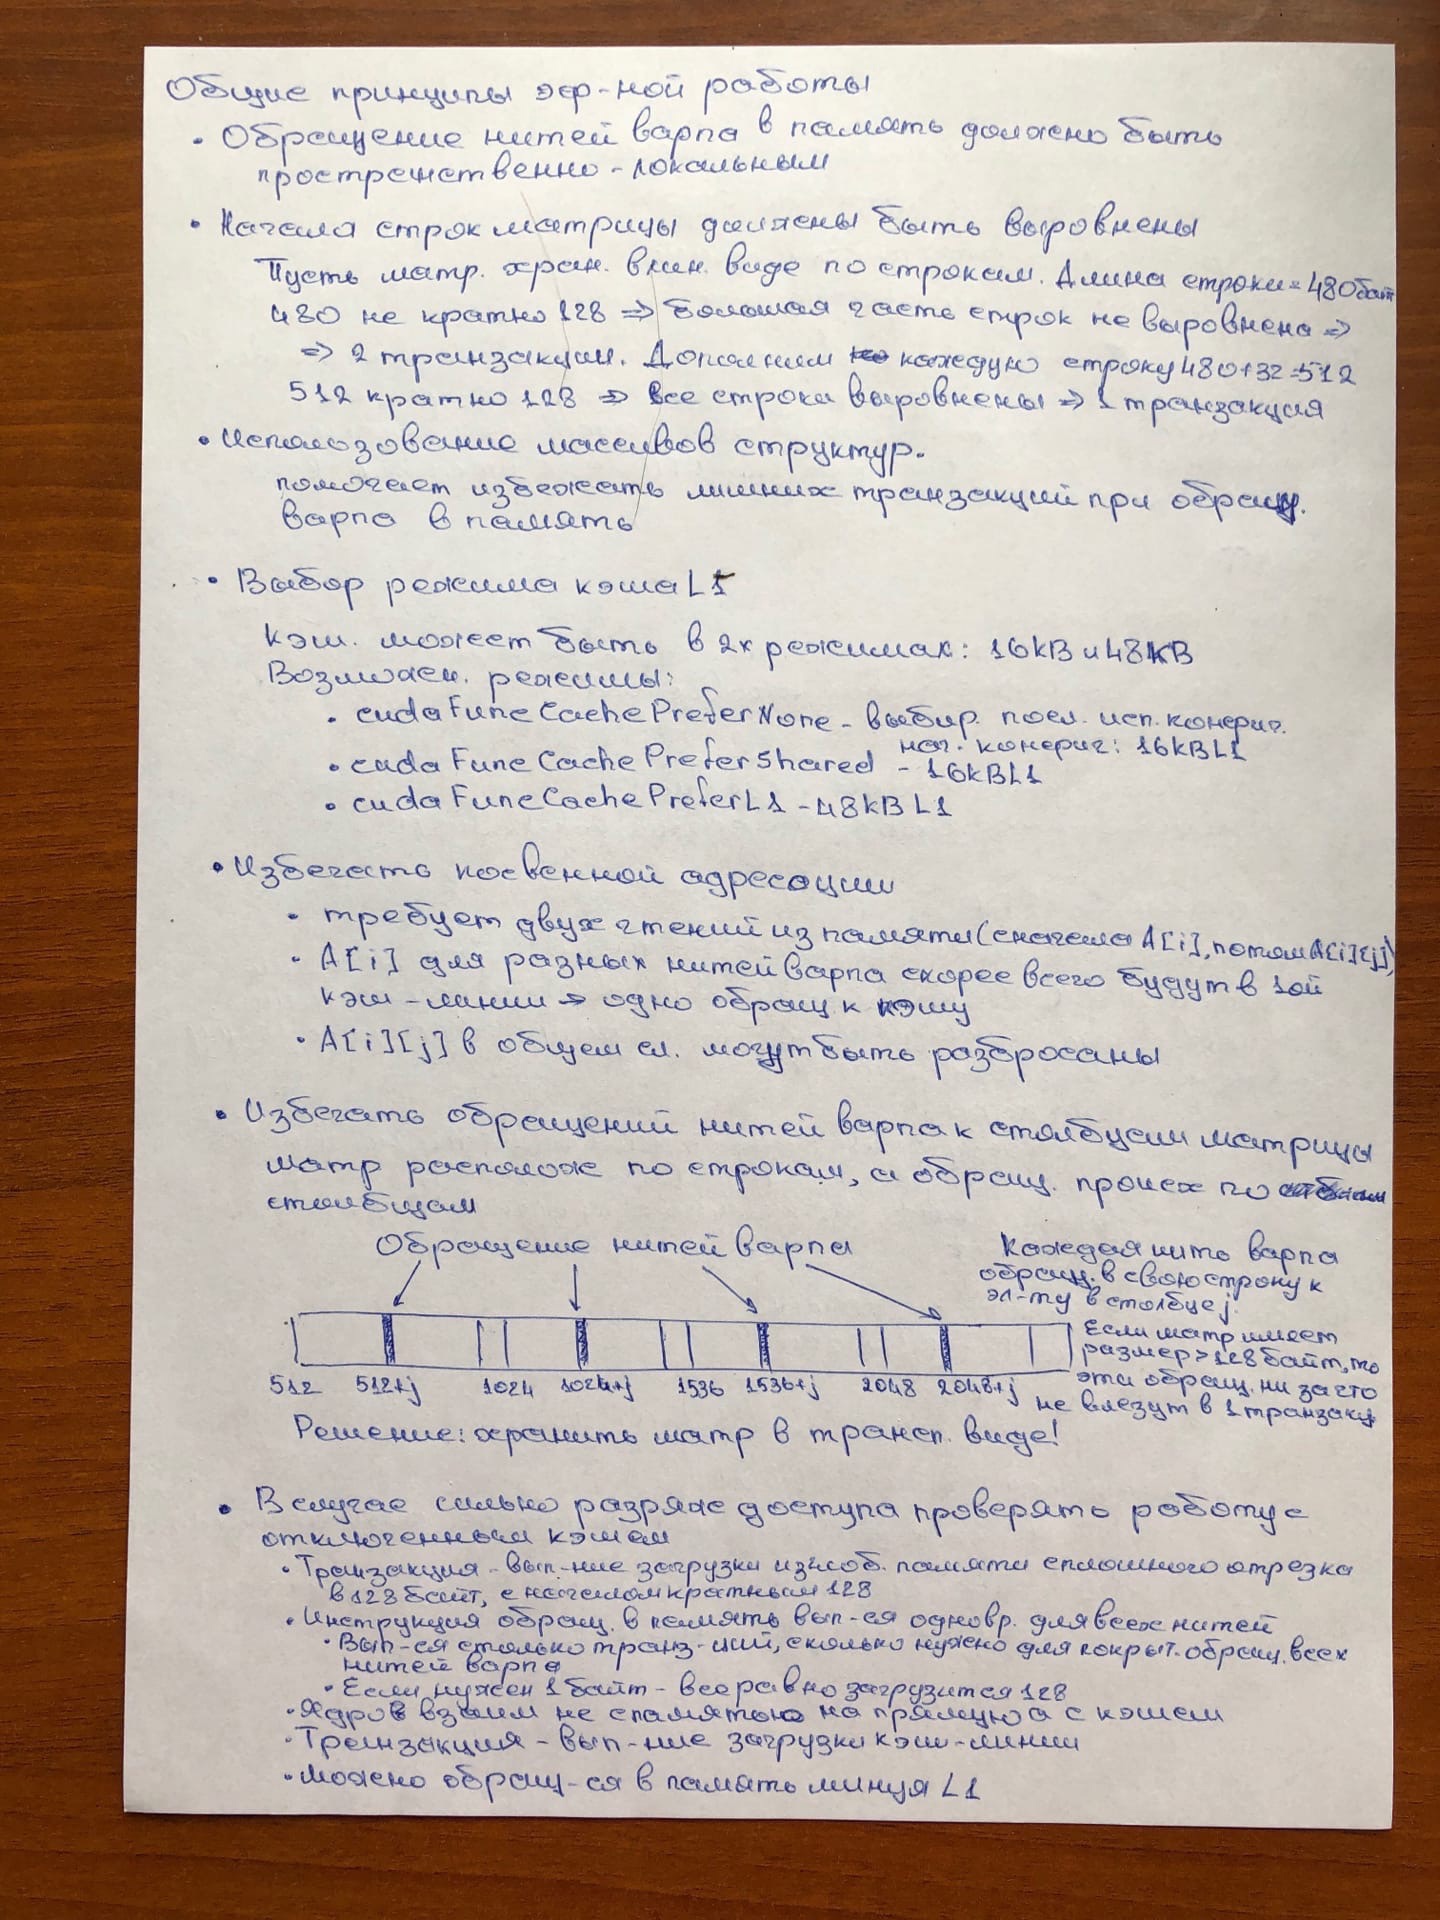 Общие принципы эф-ной работы
• Обращение нитей варпа в память должно быть
пространственно-локальным
• Начала строк матрицы должны быть выровнены
Пусть матр. хран. в лин. виде по строкам. Длина строки = 480 байт
480 не кратно 128 => большая часть строк не выровнена =>
=> 2 транзакции. Дополним каждую строку 480+32=512
512 кратно 128 => все строки выровнены => 1 транзакция
• Использование массивов структур.
помогает избежать лишних транзакций при обращ.
варпа в память
• Выбор режима кэша L1
Кэш. может быть в 2х режимах: 16kB и 48kB
Возможн. режимы:
• cudaFuncCachePreferNone - выбир. посл. исп. конфиг.
нач. конфиг: 16kB L1
• cudaFuncCachePreferShared - 16kB L1
• cudaFuncCachePreferL1 - 48kB L1
• Избегать косвенной адресации
• требует двух чтений из памяти (сначала A[i], потом A[i][j])
• A[i] для разных нитей варпа скорее всего будут в 1ой
кэш-линии => одно обращ к кэшу
• A[i][j] в общем сл. могут быть разбросаны
• Избегать обращений нитей варпа к столбцам матрицы
матр располож по строкам, а обращ. происх по
столбцам
Обращение нитей варпа
Каждая нить варпа
обращ. в свою строку к
эл-ту в столбце j.
Если матр имеет
размер > 128 байт, то
эти обращ. ни за что
не влезут в 1 транзакц
512 512+j 1024 1024+j 1536 1536+j 2048 2048+j
Решение: хранить матр в трансп. виде!
• В случае сильно разряж доступа проверять работу с
отключенным кэшем
• Транзакция - вып-ние загрузки из глоб. памяти сплошного отрезка
в 128 байт, с началом кратным 128
• Инструкция обращ. в память вып-ся одновр. для всех нитей
• Вып-ся столько транз-ций, сколько нужно для покрыт. обращ. всех
нитей варпа
• Если нужен 1 байт - все равно загрузится 128
• Ядров взаим не с памятью на прямую а с кэшем
• Транзакция - вып-ние загрузки кэш-линии
• Можно обращ-ся в память минуя L1